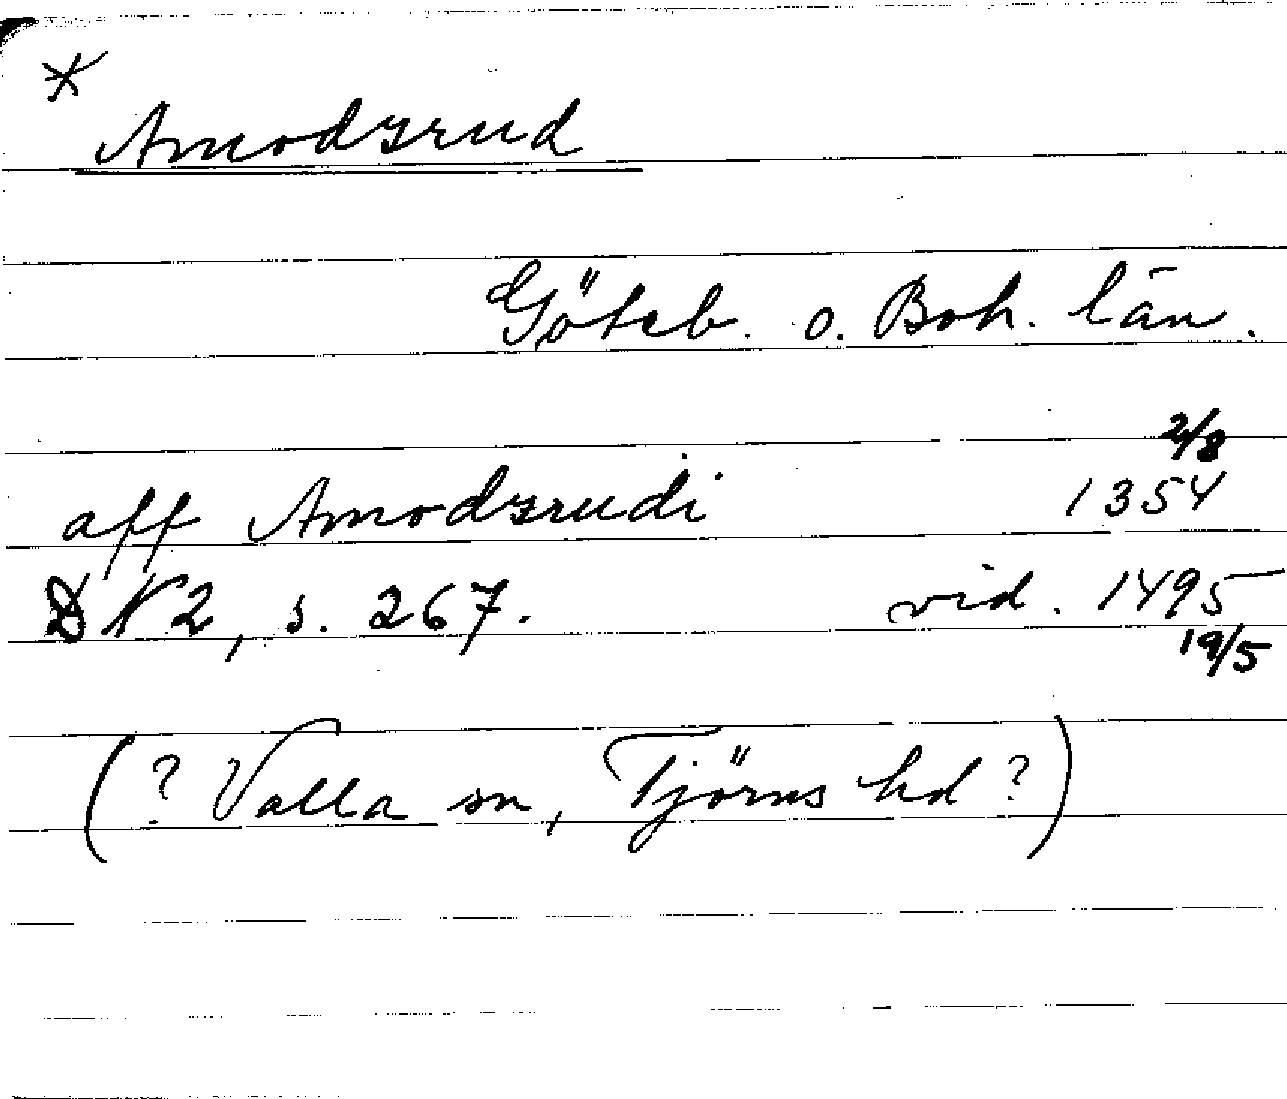 *
Amodzrud
Göteb. o. Boh. län.
2/8
aff Amodzrudi 1354
DN 2, s. 267. vid. 1495
19/5
(? Valla sn, Tjörns hd ?)